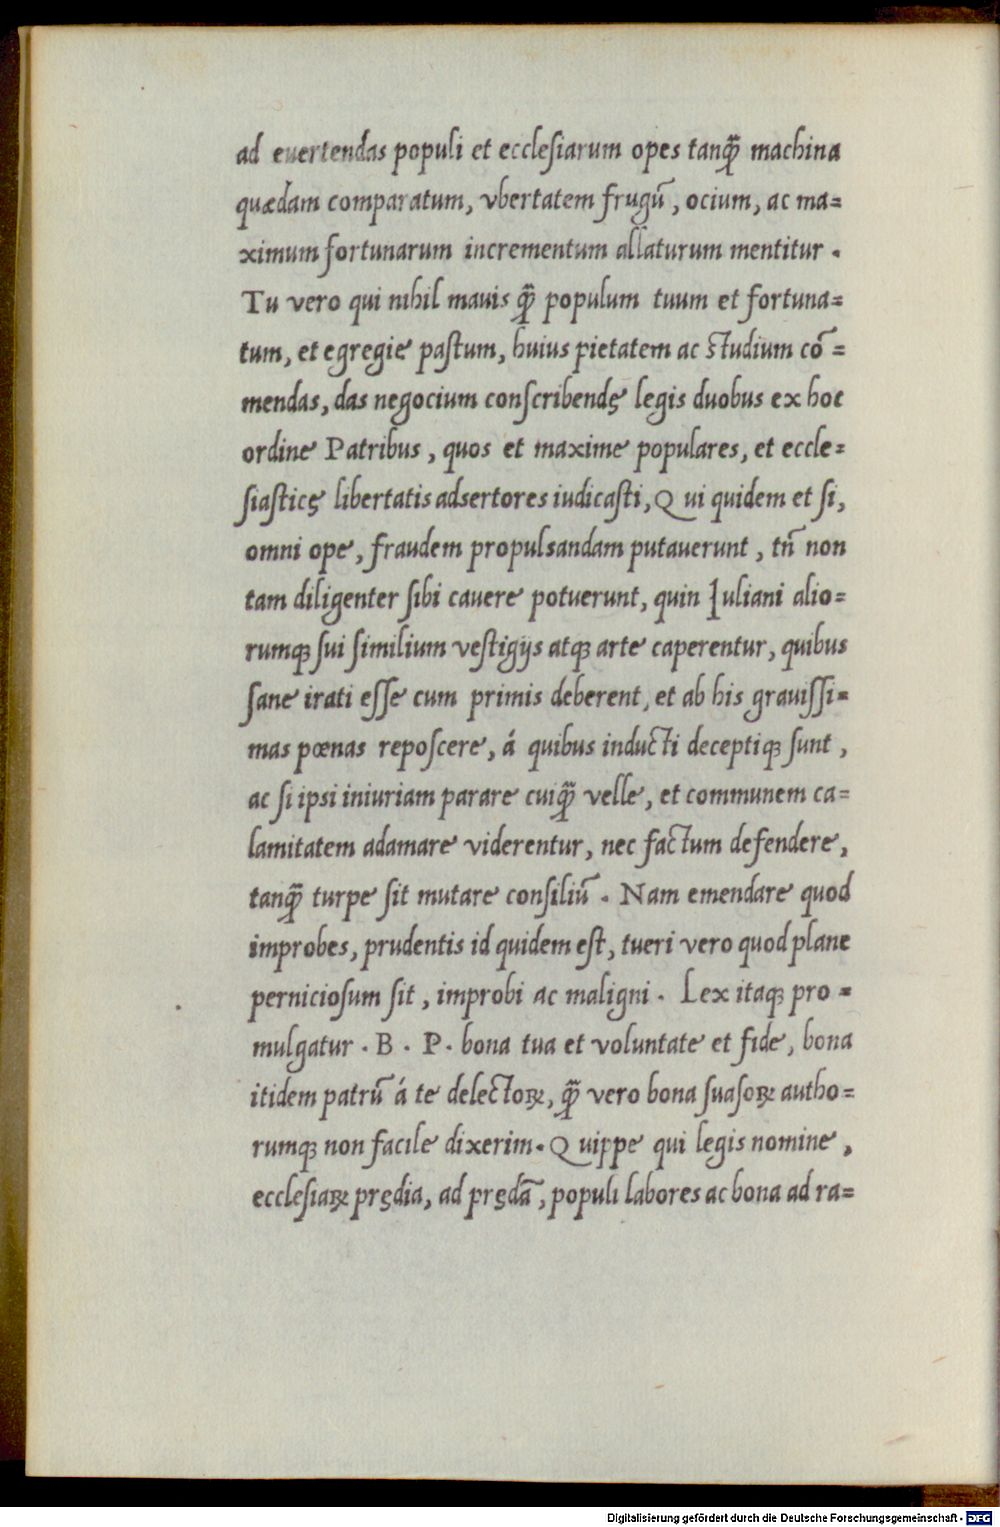 ad euertendas populi et ecclesiarum opes tanqꝫ̃ machina
quædam comparatum, vbertatem frugũ, ocium, ac ma=
ximum fortunarum incrementum allaturum mentitur.
Tu vero qui nihil mauis qꝫ̃ populum tuum et fortuna=
tum, et egregie pastum, huius pietatem ac studium cõ=
mendas, das negocium conscribendę legis duobus ex hoc
ordine Patribus, quos et maxime populares, et eccle=
siasticę libertatis adsertores iudicasti, Qui quidem et si,
omni ope, fraudem propulsandam putauerunt, tñ non
tam diligenter sibi cauere potuerunt, quin Iuliani alio=
rumqꝫ sui similium vestigijs atqꝫ arte caperentur, quibus
sane irati esse cum primis deberent, et ab his grauissi=
mas pœnas reposcere, á quibus inducti deceptiqꝫ sunt,
ac si ipsi iniuriam parare cuiqꝫ̃ velle, et communem ca=
lamitatem adamare viderentur, nec factum defendere,
tanqꝫ̃ turpe sit mutare consiliũ. Nam emendare quod
improbes, prudentis id quidem est, tueri vero quod plane
perniciosum sit, improbi ac maligni. Lex itaqꝫ pro=
mulgatur. B. P. bona tua et voluntate et fide, bona
itidem patrũ á te delectoꝝ, qꝫ̃ vero bona suasoꝝ autho=
rumqꝫ non facile dixerim. Quippe qui legis nomine,
ecclesiaꝝ prędia, ad prędã, populi labores ac bona ad ra=
Digitalisierung gefördert durch die Deutsche Forschungsgemeinschaft - DFG